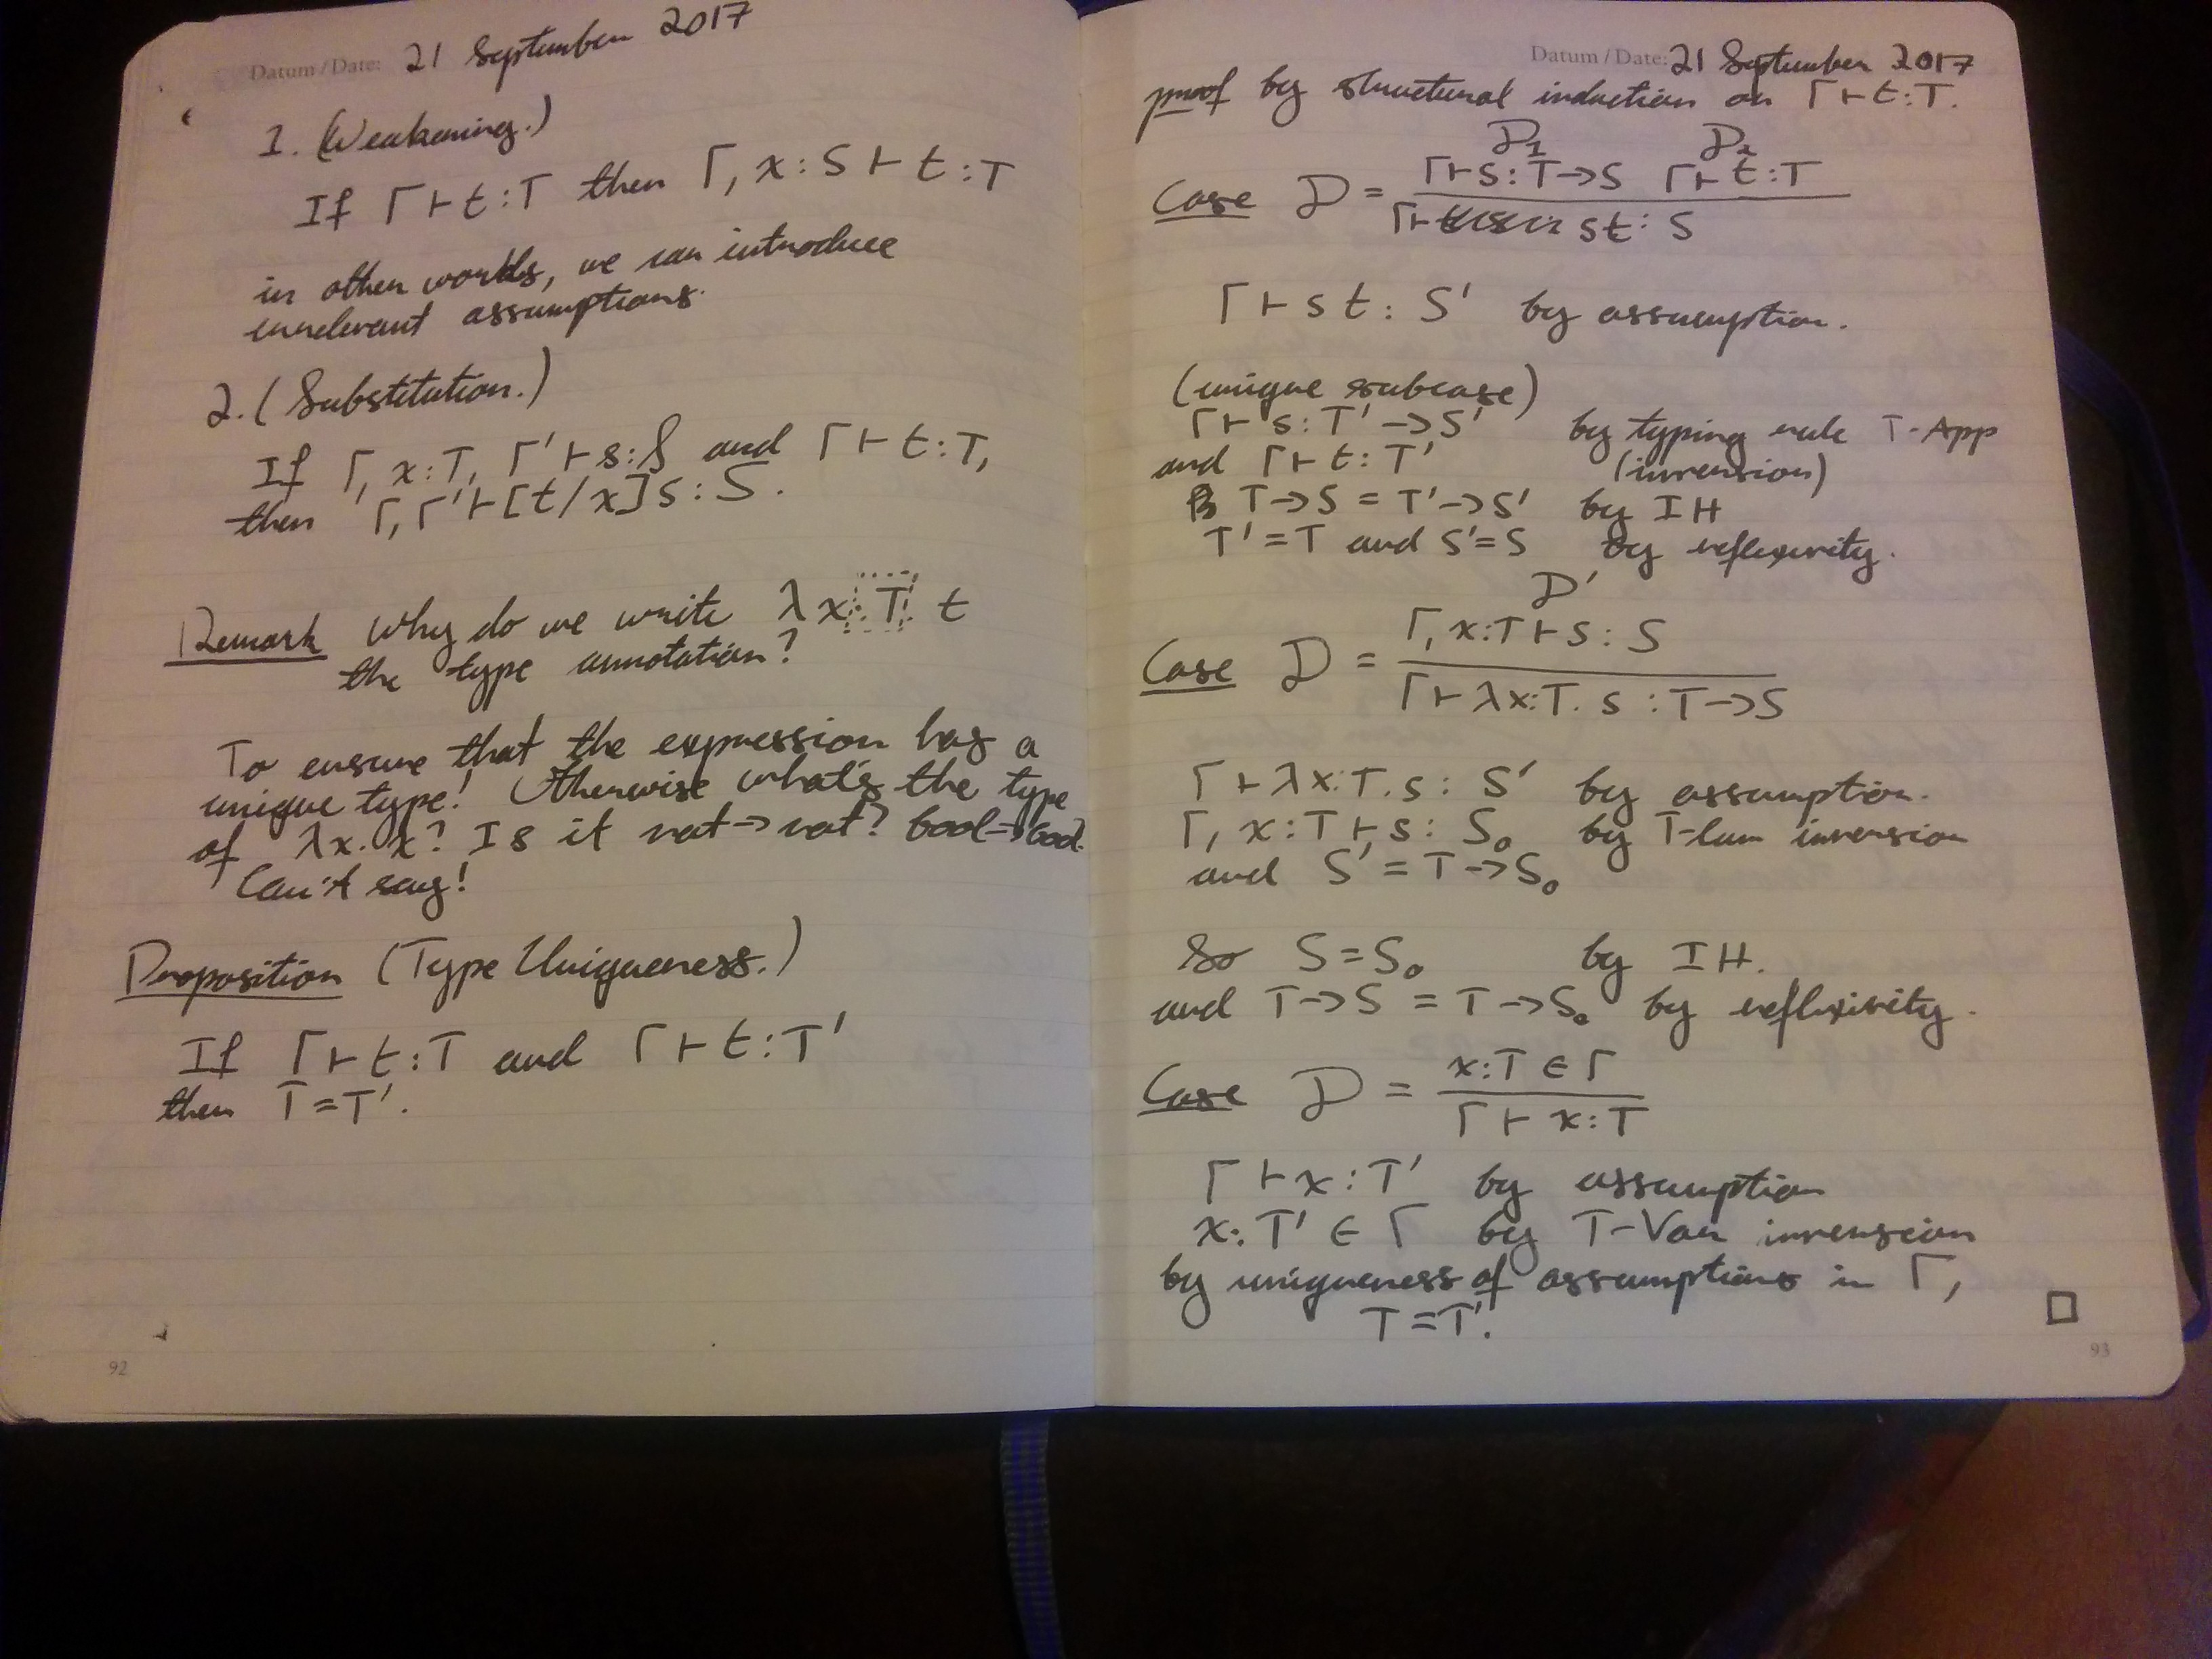 Datum / Date: 21 September 2017
1. (Weakening.)
If Γ ⊢ t : T then Γ, x : S ⊢ t : T
in other words, we can introduce
irrelevant assumptions.
2. (Substitution.)
If Γ, x : T, Γ' ⊢ s : S and Γ ⊢ t : T,
then Γ, Γ' ⊢ [t/x]s : S.
Remark Why do we write λx:T. t
the type annotation?
To ensure that the expression has a
unique type! Otherwise what's the type
of λx. x? Is it nat -> nat? bool -> bool.
Can't say!
Proposition (Type Uniqueness.)
If Γ ⊢ t : T and Γ ⊢ t : T'
then T = T'.
92
Datum / Date: 21 September 2017
proof by structural induction on Γ ⊢ t : T.
D₁ D₂
Γ ⊢ s : T -> S Γ ⊢ t : T
Case D =
Γ ⊢ st : S
Γ ⊢ s t : S' by assumption.
(unique subcase)
Γ ⊢ s : T' -> S' by typing rule T-App
and Γ ⊢ t : T' (inversion)
T -> S = T' -> S' by IH
T' = T and S' = S by reflexivity.
D'
Γ, x:T ⊢ s : S
Case D =
Γ ⊢ λx:T. s : T -> S
Γ ⊢ λx:T. s : S' by assumption.
Γ, x : T ⊢ s : S₀ by T-lam inversion
and S' = T -> S₀
So S = S₀ by IH.
and T -> S = T -> S₀ by reflexivity.
x:T ∈ Γ
Case D =
Γ ⊢ x : T
Γ ⊢ x : T' by assumption
x : T' ∈ Γ by T-Var inversion
by uniqueness of assumptions in Γ,
T = T'. □
93